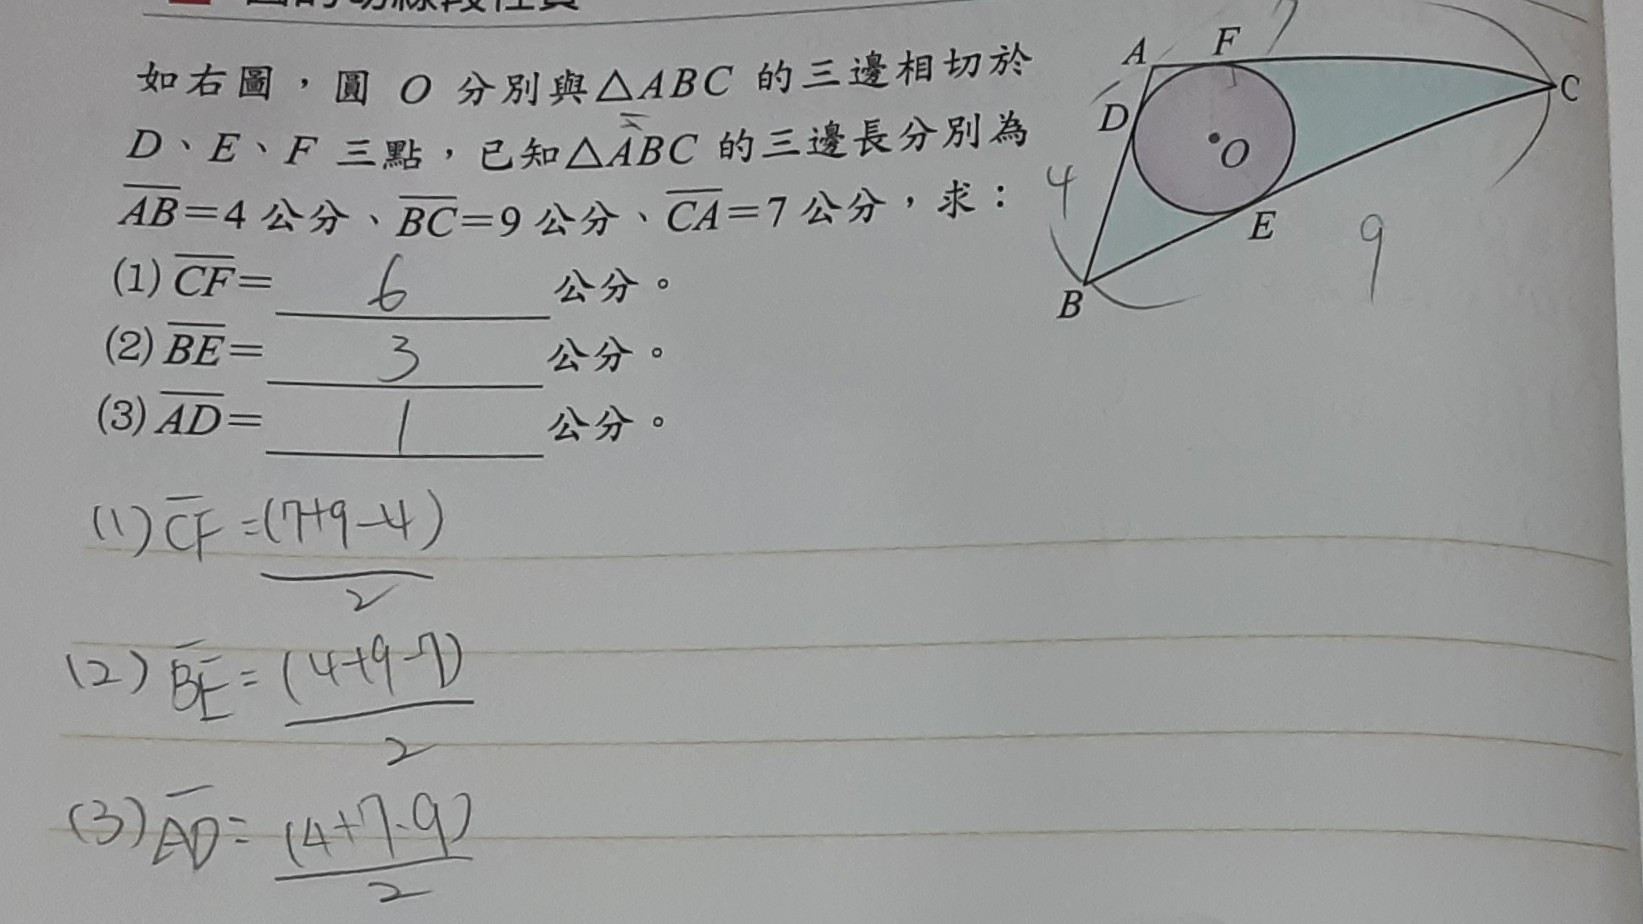 圓的切線段性質
如右圖，圓 O 分別與△ABC 的三邊相切於
D、E、F 三點，已知△ABC 的三邊長分別為
AB=4 公分、BC=9 公分、CA=7 公分，求：
(1) CF= 6 公分。
(2) BE= 3 公分。
(3) AD= 1 公分。
A F 7
C
D
O
4
E
9
B
(1) CF = (7+9-4)
2
(2) BE = (4+9-7)
2
(3) AD = (4+7-9)
2